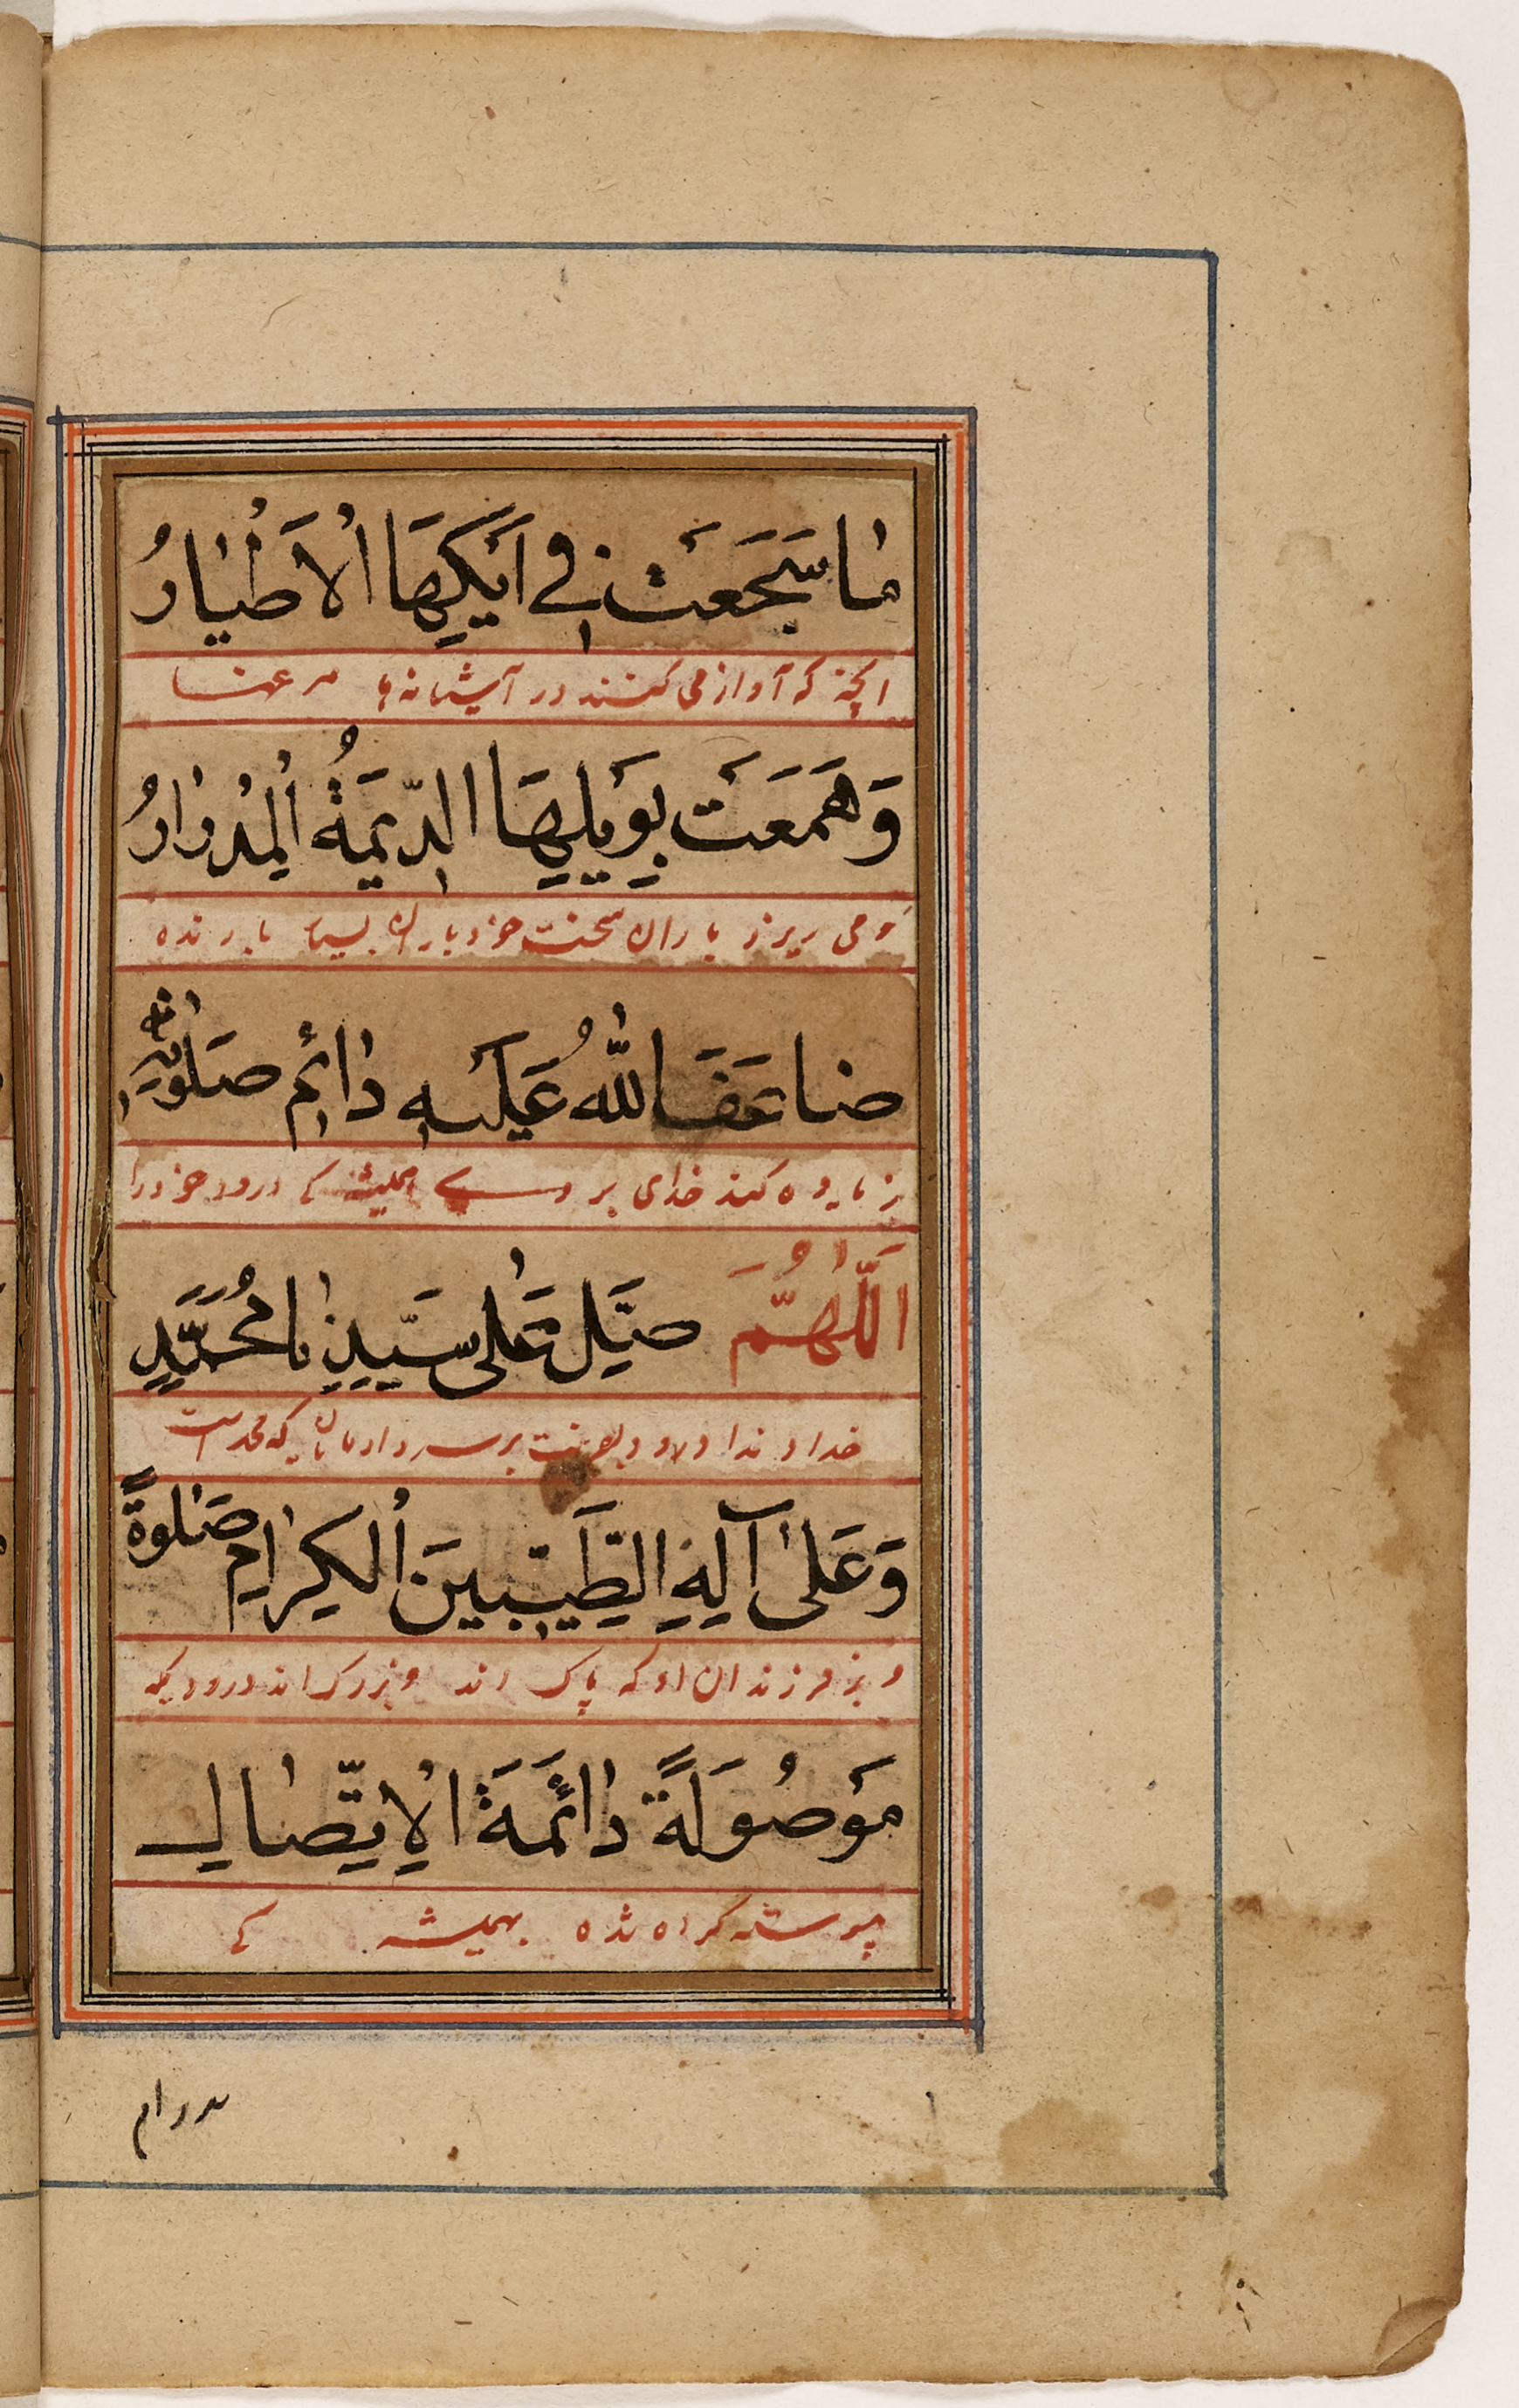 مٰا سَجَعَتْ فِي اَيْكِهَا الْاَطْيٰارُ
انچه که آواز می کنند در آشیانه ها مرغها
وَهَمَعَتْ بِوَبْلِهَا الدِّيمَةُ الْمِدْرٰارُ
و می ریزد باران سخت خود باران بسیار بارنده
ضاعَفَ اللّٰهُ عَلَيْهِ دٰائِمَ صَلَوٰاتِهِ
زیاده کند خدای بر وی همیشه کی درود خود را
اَللّٰهُمَّ صَلِّ عَلٰى سَيِّدِنٰا مُحَمَّدٍ
خداوندا درود بفرست بر سردار مایان که محمد است
وَعَلىٰ آلِهِ الطَّيِّبينَ الْكِرٰامِ صَلٰوةً
و بر فرزندان او که پاک اند و بزرک اند درودیکه
مَوْصُولَةً دٰائِمَةَ الْاِتِّصٰالِ
پیوسته کرده شده بهمیشه کی
بدوام